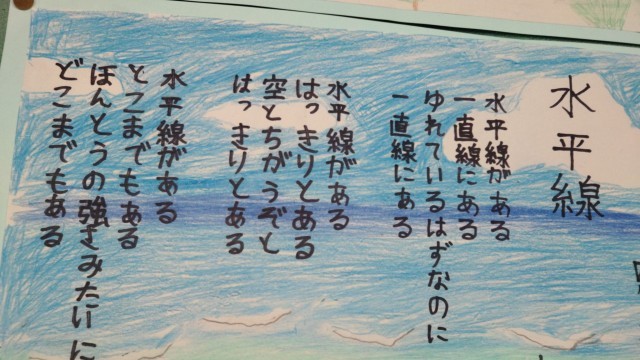 水平線
水平線がある
一直線にある
ゆれているはずなのに
一直線にある
水平線がある
はっきりとある
空とちがうぞと
はっきりとある
水平線がある
どこまでもある
ほんとうの強さみたいに
どこまでもある